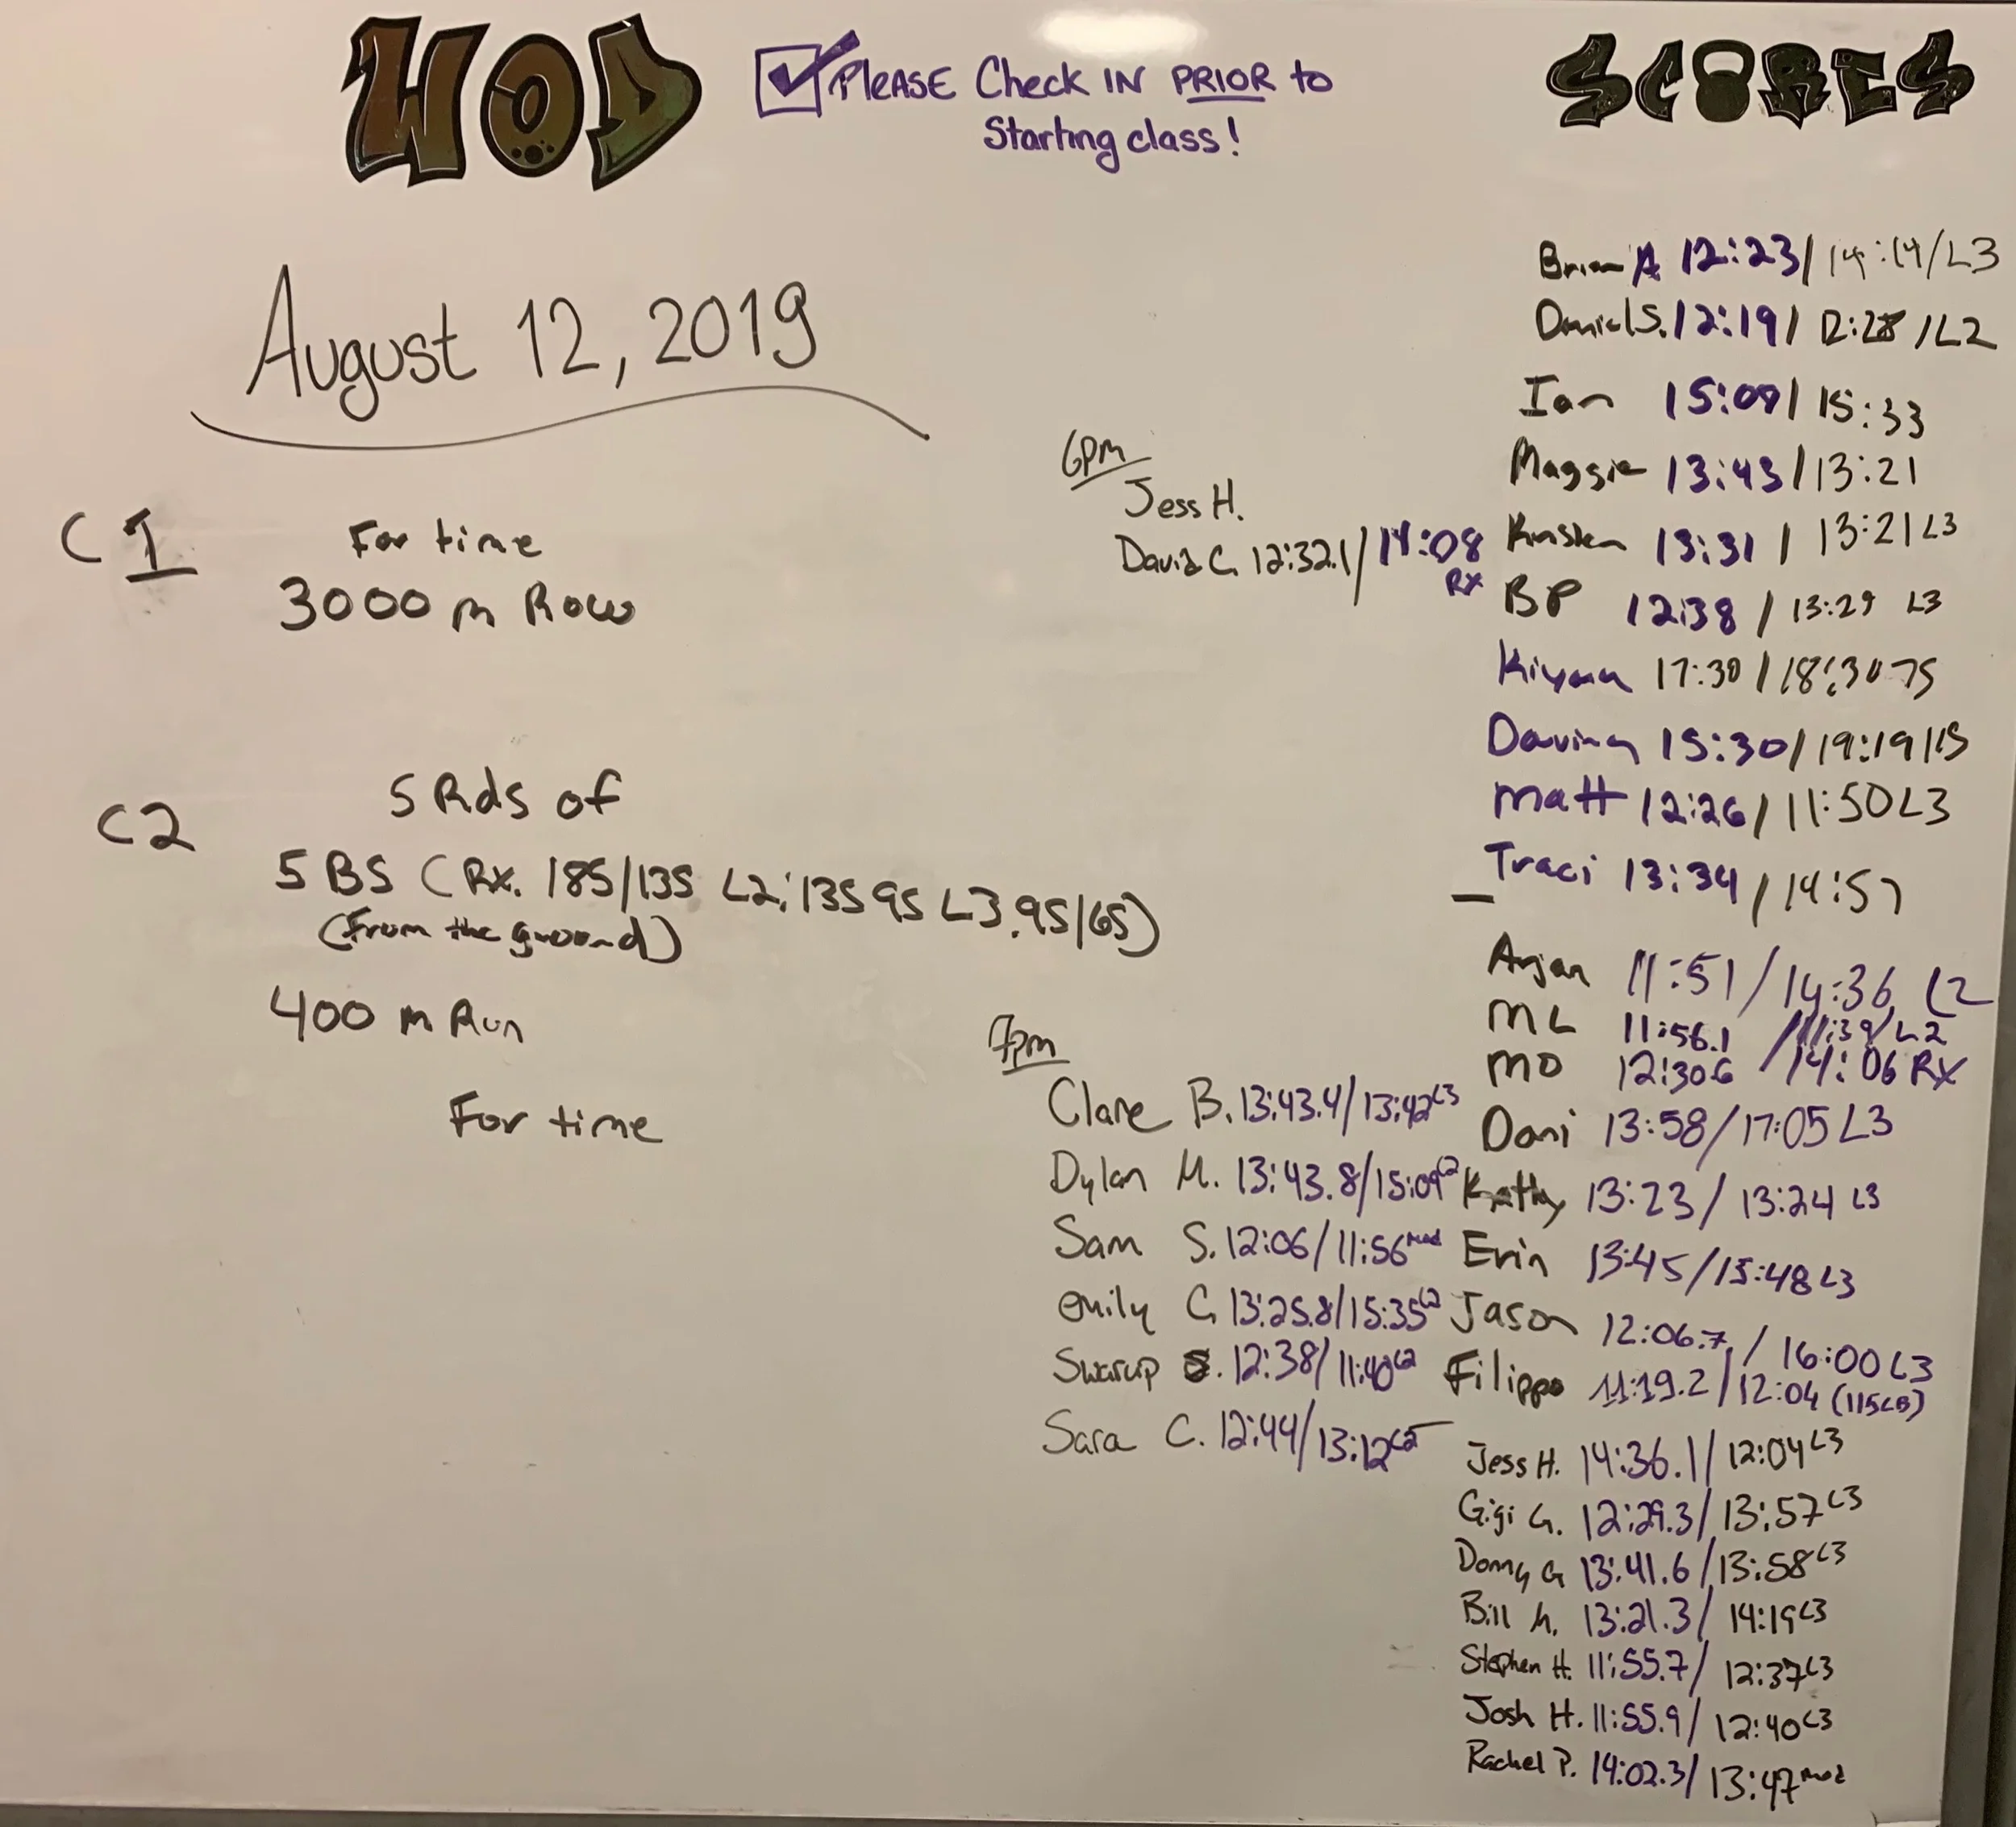 WOD
PLEASE Check IN PRIOR to
Starting class!
SCORES
August 12, 2019
C1
For time
3000 m Row
C2
5 Rds of
5 BS (RX. 185/135 L2: 135 95 L3. 95/65)
(From the ground)
400 m Run
For time
6pm
Jess H.
David C. 12:32.1/14:08
RX
7pm
Clare B. 13:43.4/13:42 L3
Dylan M. 13:43.8/15:09 L2
Sam S. 12:06/11:56 mod
emily C. 13:25.8/15:35 L2
Swarup S. 12:38/11:40 L2
Sara C. 12:44/13:12 L2
Brian A 12:23/14:14/L3
Daniel S. 12:19/12:28/L2
Ian 15:09/15:33
Maggie 13:43/13:21
13:31/13:21 L3
BP 12:38/13:29 L3
17:30/18:30 75
15:30/19:19/
Matt 12:26/11:50 L3
Traci 13:34/14:57
Arjan 11:51/14:36 L2
ML 11:56.1/11:39/L2
MO 12:30.6/14:06 RX
Dani 13:58/17:05 L3
Kathy 13:23/13:24 L3
Erin 13:45/15:48 L3
Jason 12:06.7/16:00 L3
Filippo 11:19.2/12:04 (115LB)
Jess H. 14:36.1/12:04 L3
Gigi G. 12:29.3/13:57 L3
Donny G 13:41.6/13:58 L3
Bill M. 13:21.3/14:19 L3
Stephen H. 11:55.7/12:37 L3
Josh H. 11:55.9/12:40 L3
Rachel P. 14:02.3/13:47 mod